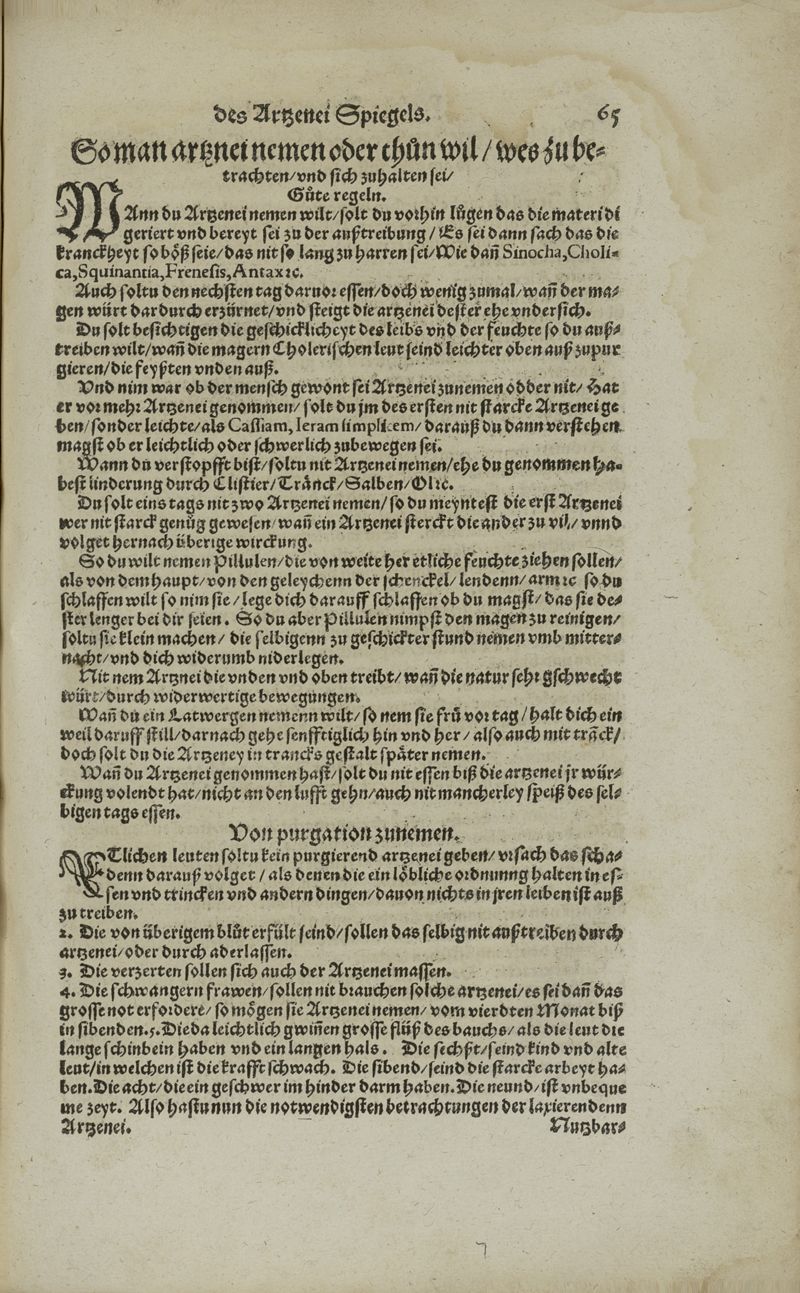 des Artzenei Spiegels. 65
So man artznei nemen oder thůn wil / wes zu be-
trachten / vnd sich zuhalten sei /
Gůte regeln.
WAnn du Artzenei nemen wilt / solt du vorhin lůgen das die materi di
geriert vnd bereyt sei zu der außtreibung / Es sei dann sach das die
kranckheyt so bôß seie / das nit so lang zu harren sei / Wie dañ Sinocha, Choli-
ca, Squinantia, Frenesis, Antax ꝛc.
Auch soltu den nechsten tag daruor essen / doch wenig zumal / wañ der ma-
gen würt dardurch erzürnet / vnd steigt die artzenei dester ehe vndersich.
Du solt besichtigen die geschicklicheyt des leibs vnd der feuchte so du auß-
treiben wilt / wañ die magern Cholerischen leut seind leichter oben auß zupur
gieren / die feyßten vnden auß.
Vnd nim war ob der mensch gewont sei Artzenei zunemen odder nit / Hat
er vor mehr Artzenei genommen / solt du jm des ersten nit starcke Artzenei ge
ben / sonder leichte / als Cassiam, Ieram simplicem / darauß du dann verstehen
magst ob er leichtlich oder schwerlich zubewegen sei.
Wann du verstopfft bist / soltu nit Artzenei nemen / ehe du genommen ha-
best linderung durch Clistier / Tränck / Salben / Ol ꝛc.
Du solt eins tags nit zwo Artzenei nemen / so du meyntest die erst Artzenei
wer nit starck genůg gewesen / wañ ein Artzenei sterckt die ander zu vil / vnnd
volget hernach überige wirckung.
So du wilt nemen Pillulen / die von weite her etliche feuchte ziehen sollen /
als von dem haupt / von den geleychenn der schenckel / lendenn / arm ꝛc so du
schlaffen wilt so nim sie / lege dich darauff schlaffen ob du magst / das sie de-
ster lenger bei dir seien. So du aber Pillulen nimpst den magen zu reinigen /
soltu sie klein machen / die selbigenn zu geschickter stund nemen vmb mitter-
nacht / vnd dich widerumb niderlegen.
Nit nem Artznei die vnden vnd oben treibt / wañ die natur sehr gschwecht
würt / durch widerwertige bewegungen.
Wañ du ein Latwergen nemenn wilt / so nem sie frů vor tag / halt dich ein
weil daruff still / darnach gehe senfftiglich hin vnd her / also auch mit träck /
doch solt du die Artzeney in trancks gestalt später nemen.
Wañ du Artzenei genommen hast / solt du nit essen biß die artzenei jr wür-
ckung volendt hat / nicht an den lufft gehn / auch nit mancherley speiß des sel-
bigen tags essen.
Von purgation zunemen.
ETlichen leuten soltu kein purgierend artzenei geben / vrsach das scha-
denn darauß volget / als denen die ein löbliche ordnunng halten in es-
sen vnd trincken vnd andern dingen / dauon nichts in jren leiben ist auß
zu treiben.
2. Die von überigem blůt erfült seind / sollen das selbig nit außtreiben durch
artzenei / oder durch aderlassen.
3. Die verzerten sollen sich auch der Artzenei massen.
4. Die schwangern frawen / sollen nit brauchen solche artzenei / es sei dañ das
grosse not erfordere / so mögen sie Artzenei nemen / vom vierdten Monat biß
in sibenden. 5. Die da leichtlich gwiñen grosse flüß des bauchs / als die leut die
lange schinbein haben vnd ein langen hals. Die sechßt / seind kind vnd alte
leut / in welchen ist die krafft schwach. Die sibend / seind die starcke arbeyt ha-
ben. Die acht / die ein geschwer im hinder darm haben. Die neund / ist vnbeque
me zeyt. Also hastu nun die notwendigsten betrachtungen der laxierendenn
Artzenei. Nutzbar-